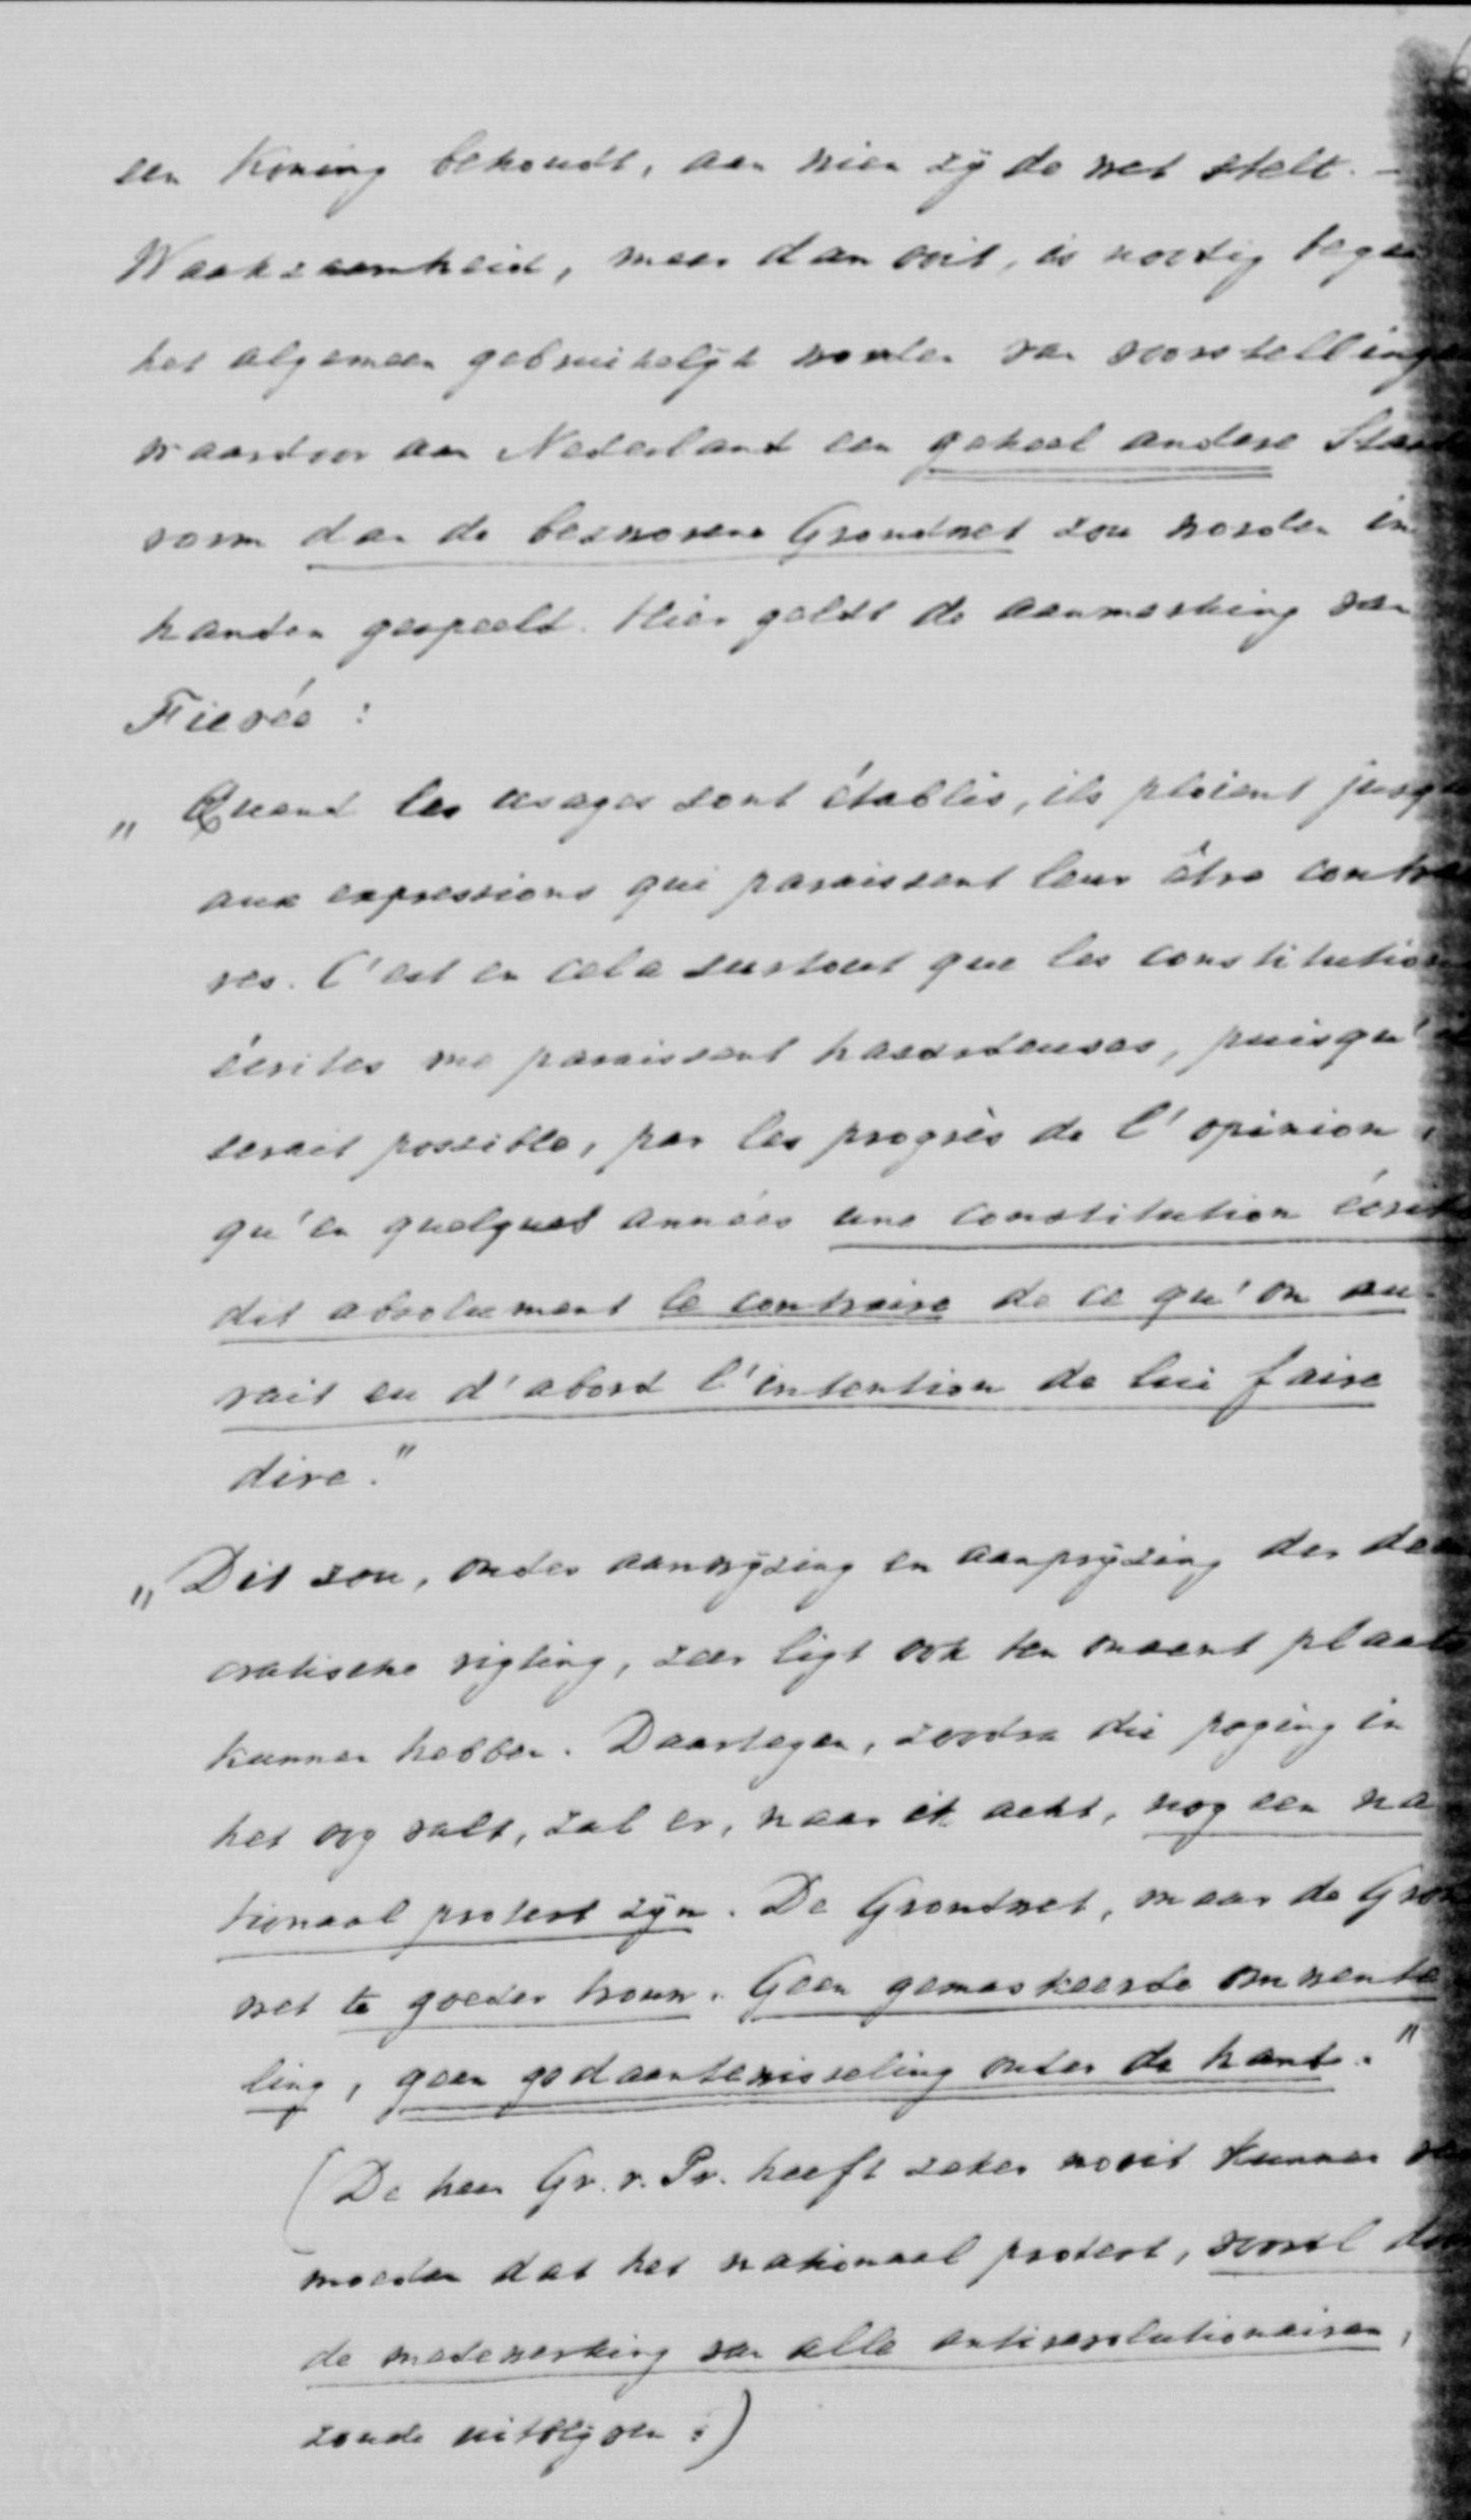 een Koning behoudt, aan wien zij de wet stelt. —
Waakzaamheid, meer dan ooit, is noodig tegen
het algemeen gebruikelijk worden van voorstelling
waardoor aan Nederland een geheel andere Staats
vorm dan de bezworene Grondwet zou worden in
handen gespeeld. Hier geldt de aanmerking van
Fievée :
„ Quand les usages sont établis, ils ploient jusqu
aux expressions qui paraissent leur être contrai
res. C'est en cela surtout que les constitutions
écrites me paraissent hasardeuses, puisqu'
serait possible, par les progrès de l'opinion,
qu'en quelques années une constitution écrite
dit absolument le contraire de ce qu'on au-
rait eu d'abord l'intention de lui faire
dire."
„ Dit zou, onder aanwijzing en aanprijzing der
cratische rigting, zeer ligt ook ten onzent plaats
kunnen hebben. Daartegen, zoodra die poging in
het oog valt, zal er, naar ik acht, nog een na
tionaal protest zijn. De Grondwet, maar de Gron
wet te goeder trouw. Geen gemaskeerde omwente
ling, geen gedaantewisseling onder de hand."
(De heer Gr. v. Pr. heeft zeker nooit kunnen
moeden dat het nationaal protest, vooral door
de medewerking van alle antirevolutionairen,
zoude uitblijven.)